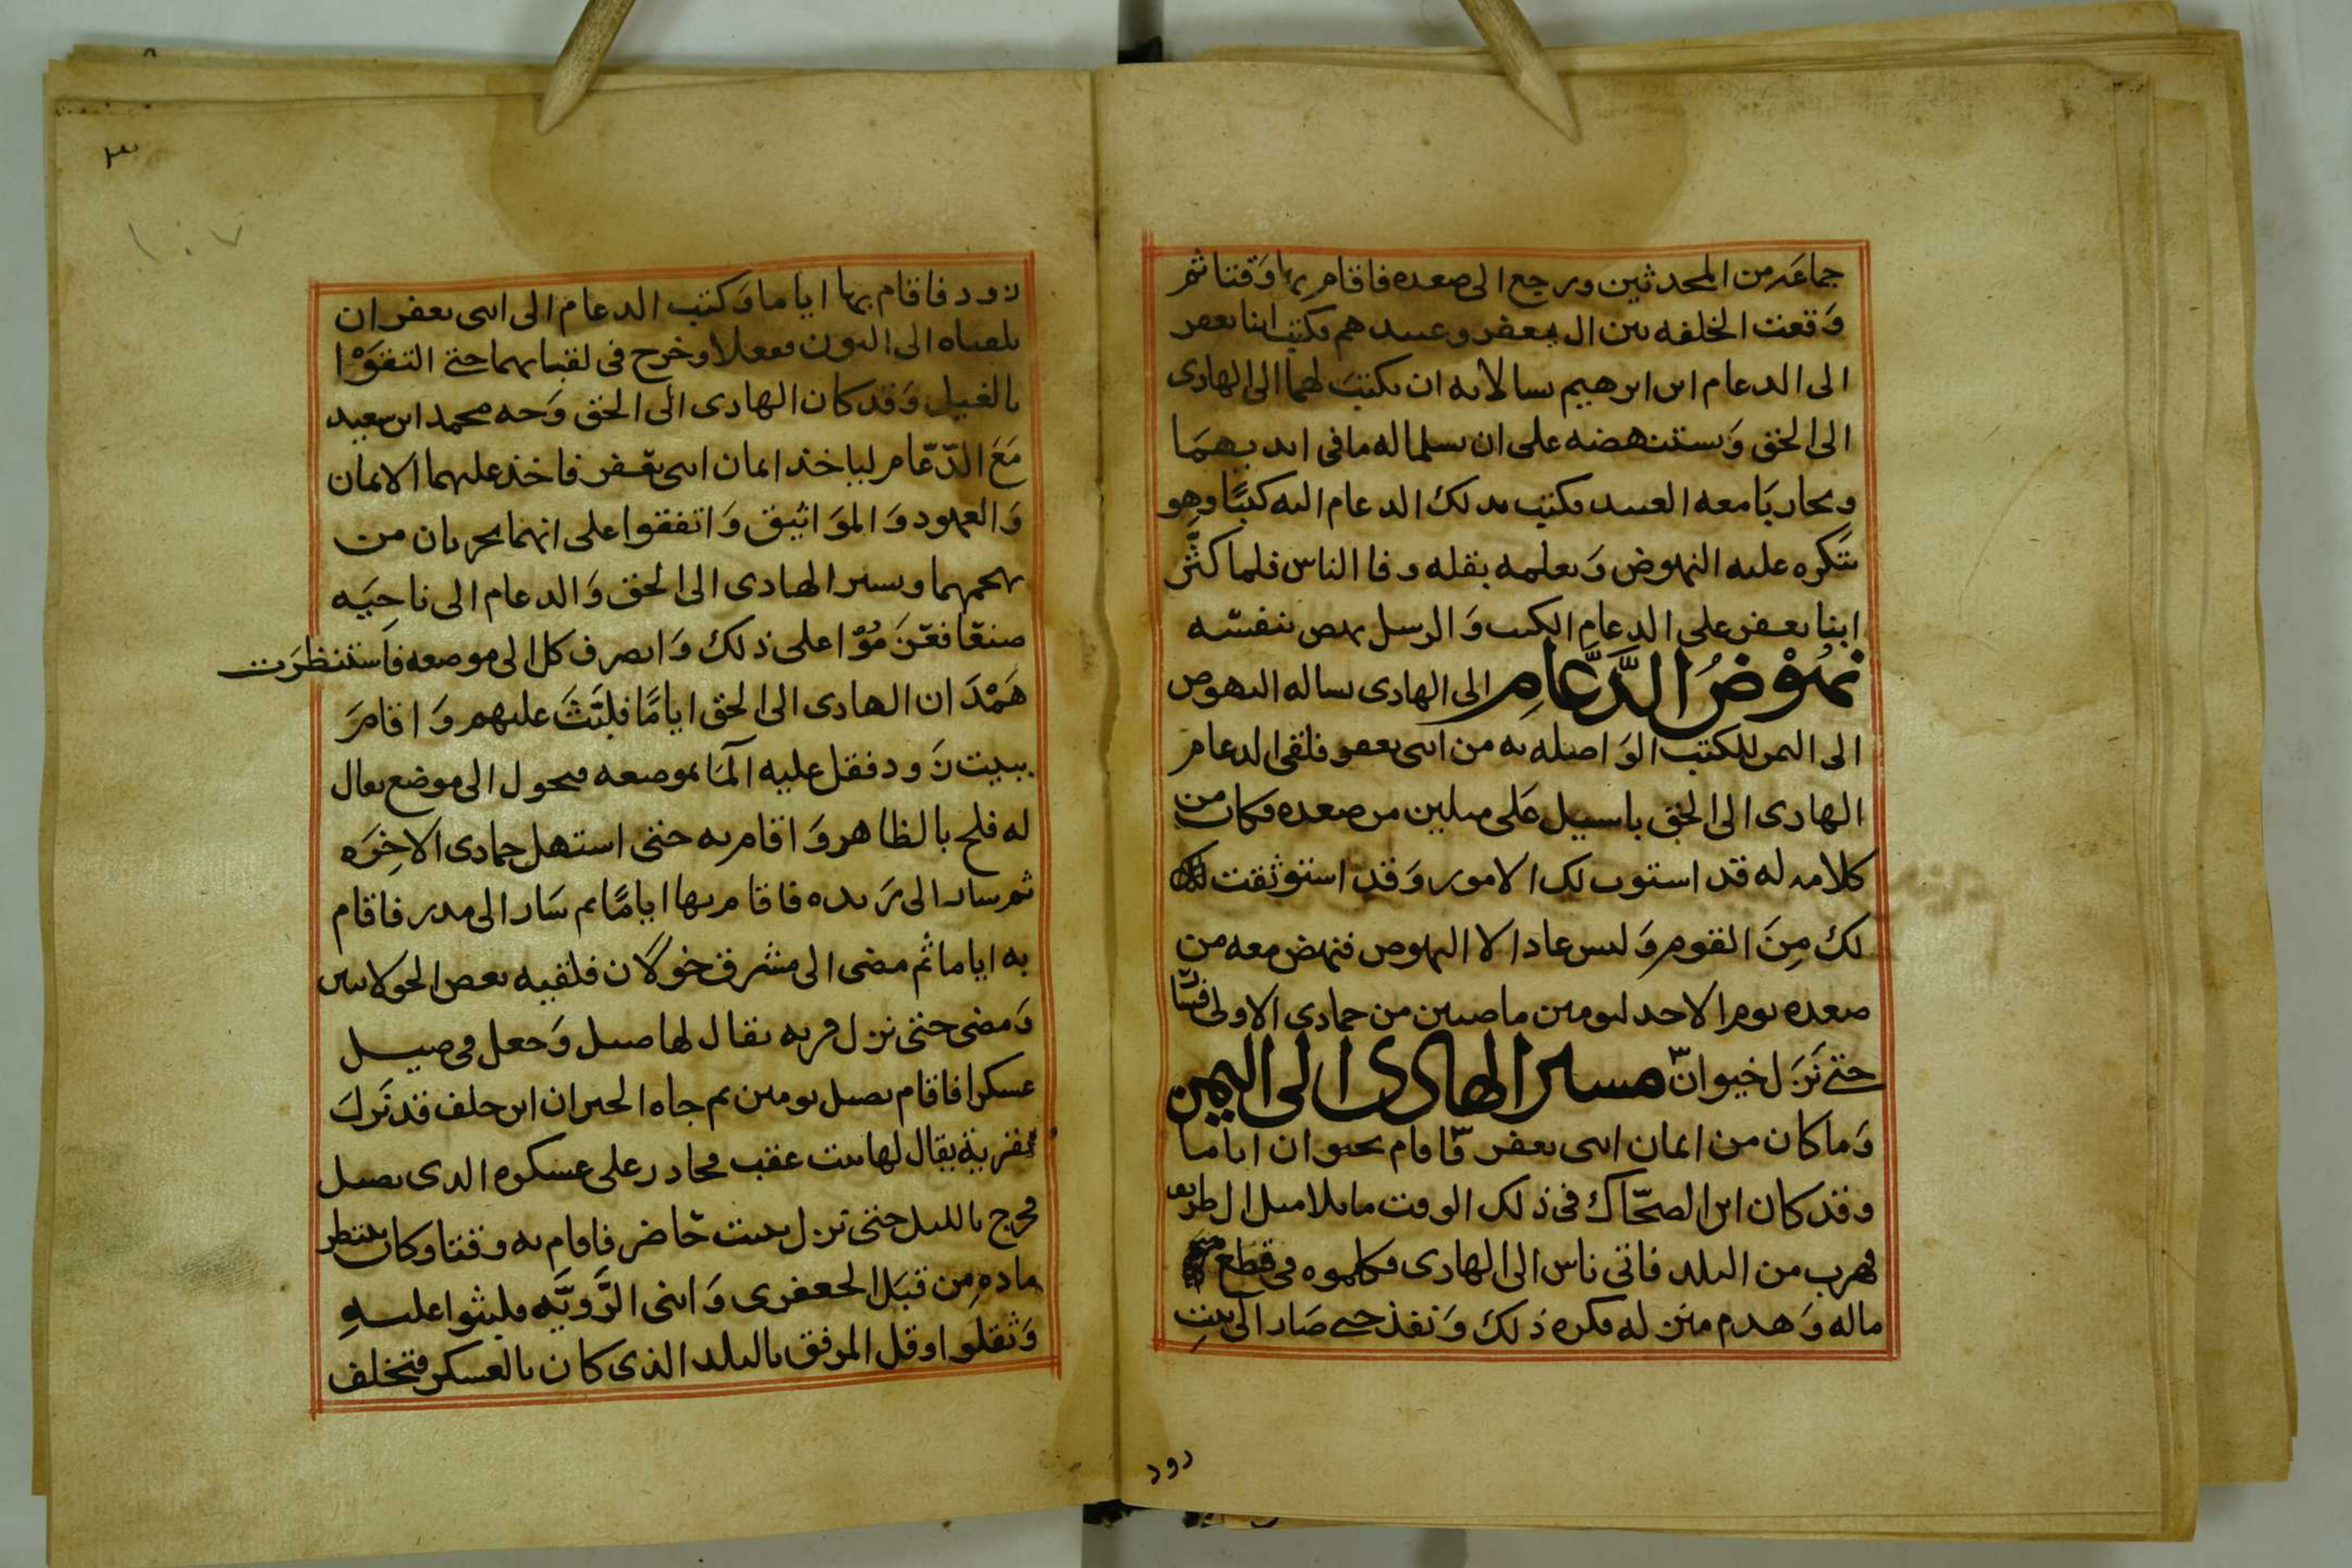 جماعه من المحدثين ورجع الى صعده فاقام بها وقتا ثم
وقعت الخلفه بين ال يعفر وعبيدهم فكتب ابنا يعفر
الى الدعام ابن ابرهيم يسالانه ان يكتب لهما الى الهادى
الى الحق ويستنهضه على ان يسلما له مافى ايديهما
ويحاربا معه العبيد فكتب بذلك الدعام اليه كتبًا وهو
يتكره عليه النهوض ويعلمه بقله وفا الناس فلما كثّر
ابنا يعفر على الدعام الكتب والرسل نهض بنفسه
نهوْضُ الدَّعَّامِ الى الهادى يساله النهوض
الى اليمن للكتب الواصله به من ابنى يعفر فلقى الدعام
الهادى الى الحق باسبل على ميلين من صعده فكان من
كلامه له قد استوت لك الامور وقد استوثقت
لك مِنَ القوم وليس عاد الا النهوض فنهض معه من
صعده يوم الاحد ليومين ماضيين من جمادى الاولى
حتى نزل خيوان مسير الهادى الى اليمن
وما كان من ايمان ابنى يعفر فاقام بخيوان اياما
وقد كان ابن الضحّاك فى ذلك الوقت مايلا ميل ال طريف
فهرب من البلد فاتى ناس الى الهادى فكلموه فى قطع
ماله وهدم منزله فكره ذلك ونفذ حتى صار الى بيت
دود
زود فاقام بها اياما وكتب الدعام الى ابنى يعفر ان
يلقياه الى البون ففعلا وخرج فى لقيانهما حتى التقوْا
بالغيل وقد كان الهادى الى الحق وجه محمد ابن سعيد
مع الدّعّام لياخذ ايمان ابنى يعفر فاخذ عليهما الايمان
والعهود والمواثيق واتفقوا على انهما يحربان من
نهجمهما ويسير الهادى الى الحق والدعام الى ناحيه
صنعا فعزموْا على ذلك وانصرف كل الى موضعه فاستنظرت
همْدان الهادى الى الحق ايامًا فلبث عليهم واقام
ببيت زود فقل عليه الما بموضعه فتحول الى موضع يقال
له فلح بالظاهر واقام به حتى استهل جمادى الاخره
ثم سار الى ريده فاقام بها ايامًا ثم سار الى مدر فاقام
به اياما ثم مضى الى مشرق خولان فلقيه بعض الخولانيين
ومضى حتى نزل قريه يقال لها صبل وجعل فى صبل
عسكرا فاقام بصبل يومين ثم جاه الخبر ان ابن خلف قد نزل
بقرية يقال لها بيت عقب فحاذر على عسكره الذى بصبل
فخرج بالليل حتى نزل ببيت حاضر فاقام به وقتا وكان ينتظر
ماده من قبل الجعفرى وابنى الرَّويَّه فلبثوا عليهِ
وثقلوا وقل المرفق بالبلد الذى كان بالعسكر فتخلف
١٠٧